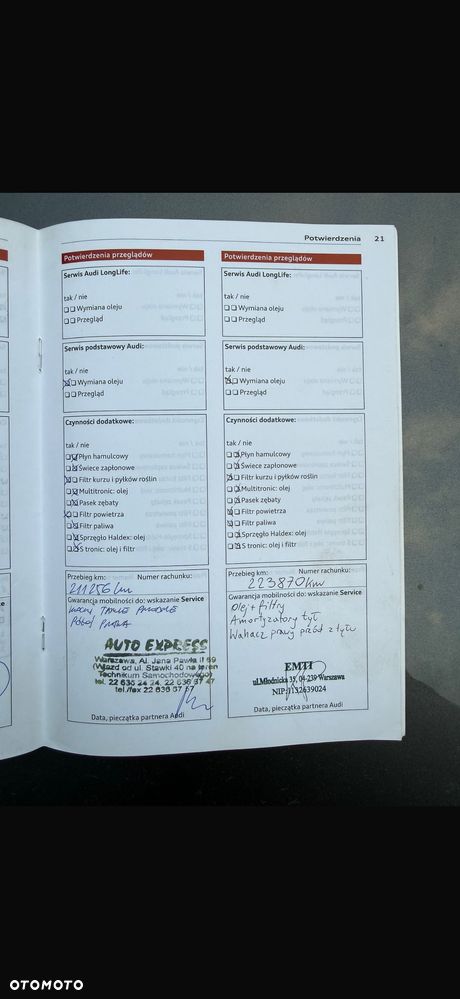 Potwierdzenia 21
Potwierdzenia przeglądów
Serwis Audi LongLife:
tak / nie
Wymiana oleju
Przegląd
Serwis podstawowy Audi:
tak / nie
Wymiana oleju
Przegląd
Czynności dodatkowe:
tak / nie
Płyn hamulcowy
Świece zapłonowe
Filtr kurzu i pyłków roślin
Multitronic: olej
Pasek zębaty
Filtr powietrza
Filtr paliwa
Sprzęgło Haldex: olej
S tronic: olej i filtr
Przebieg km: Numer rachunku:
211256 km
Gwarancja mobilności do: wskazanie Service
AUTO EXPRESS
Warszawa, Al. Jana Pawła II 69
(Wjazd od ul. Stawki 40 na teren
Technikum Samochodowego)
tel. 22 636 24 24, 22 636 37 47
tel./fax 22 636 37 57
Data, pieczątka partnera Audi
Potwierdzenia przeglądów
Serwis Audi LongLife:
tak / nie
Wymiana oleju
Przegląd
Serwis podstawowy Audi:
tak / nie
Wymiana oleju
Przegląd
Czynności dodatkowe:
tak / nie
Płyn hamulcowy
Świece zapłonowe
Filtr kurzu i pyłków roślin
Multitronic: olej
Pasek zębaty
Filtr powietrza
Filtr paliwa
Sprzęgło Haldex: olej
S tronic: olej i filtr
Przebieg km: Numer rachunku:
223870 km
Gwarancja mobilności do: wskazanie Service
Olej + filtry
Amortyzatory tył
Wahacz prawy przód z tyłu
EMTI
ul.Młodnicka 35, 04-239 Warszawa
NIP:1132639024
Data, pieczątka partnera Audi
OTOMOTO